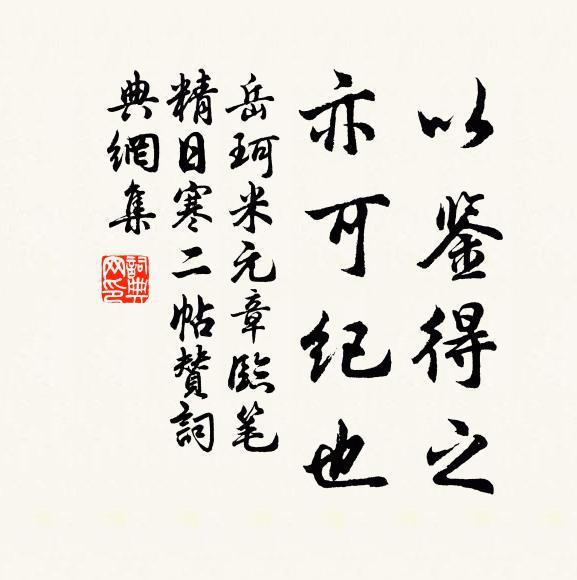 以鉴得之
亦可纪也
岳珂米元章临笔
精日寒二帖赞詞
典網集
詞典網印